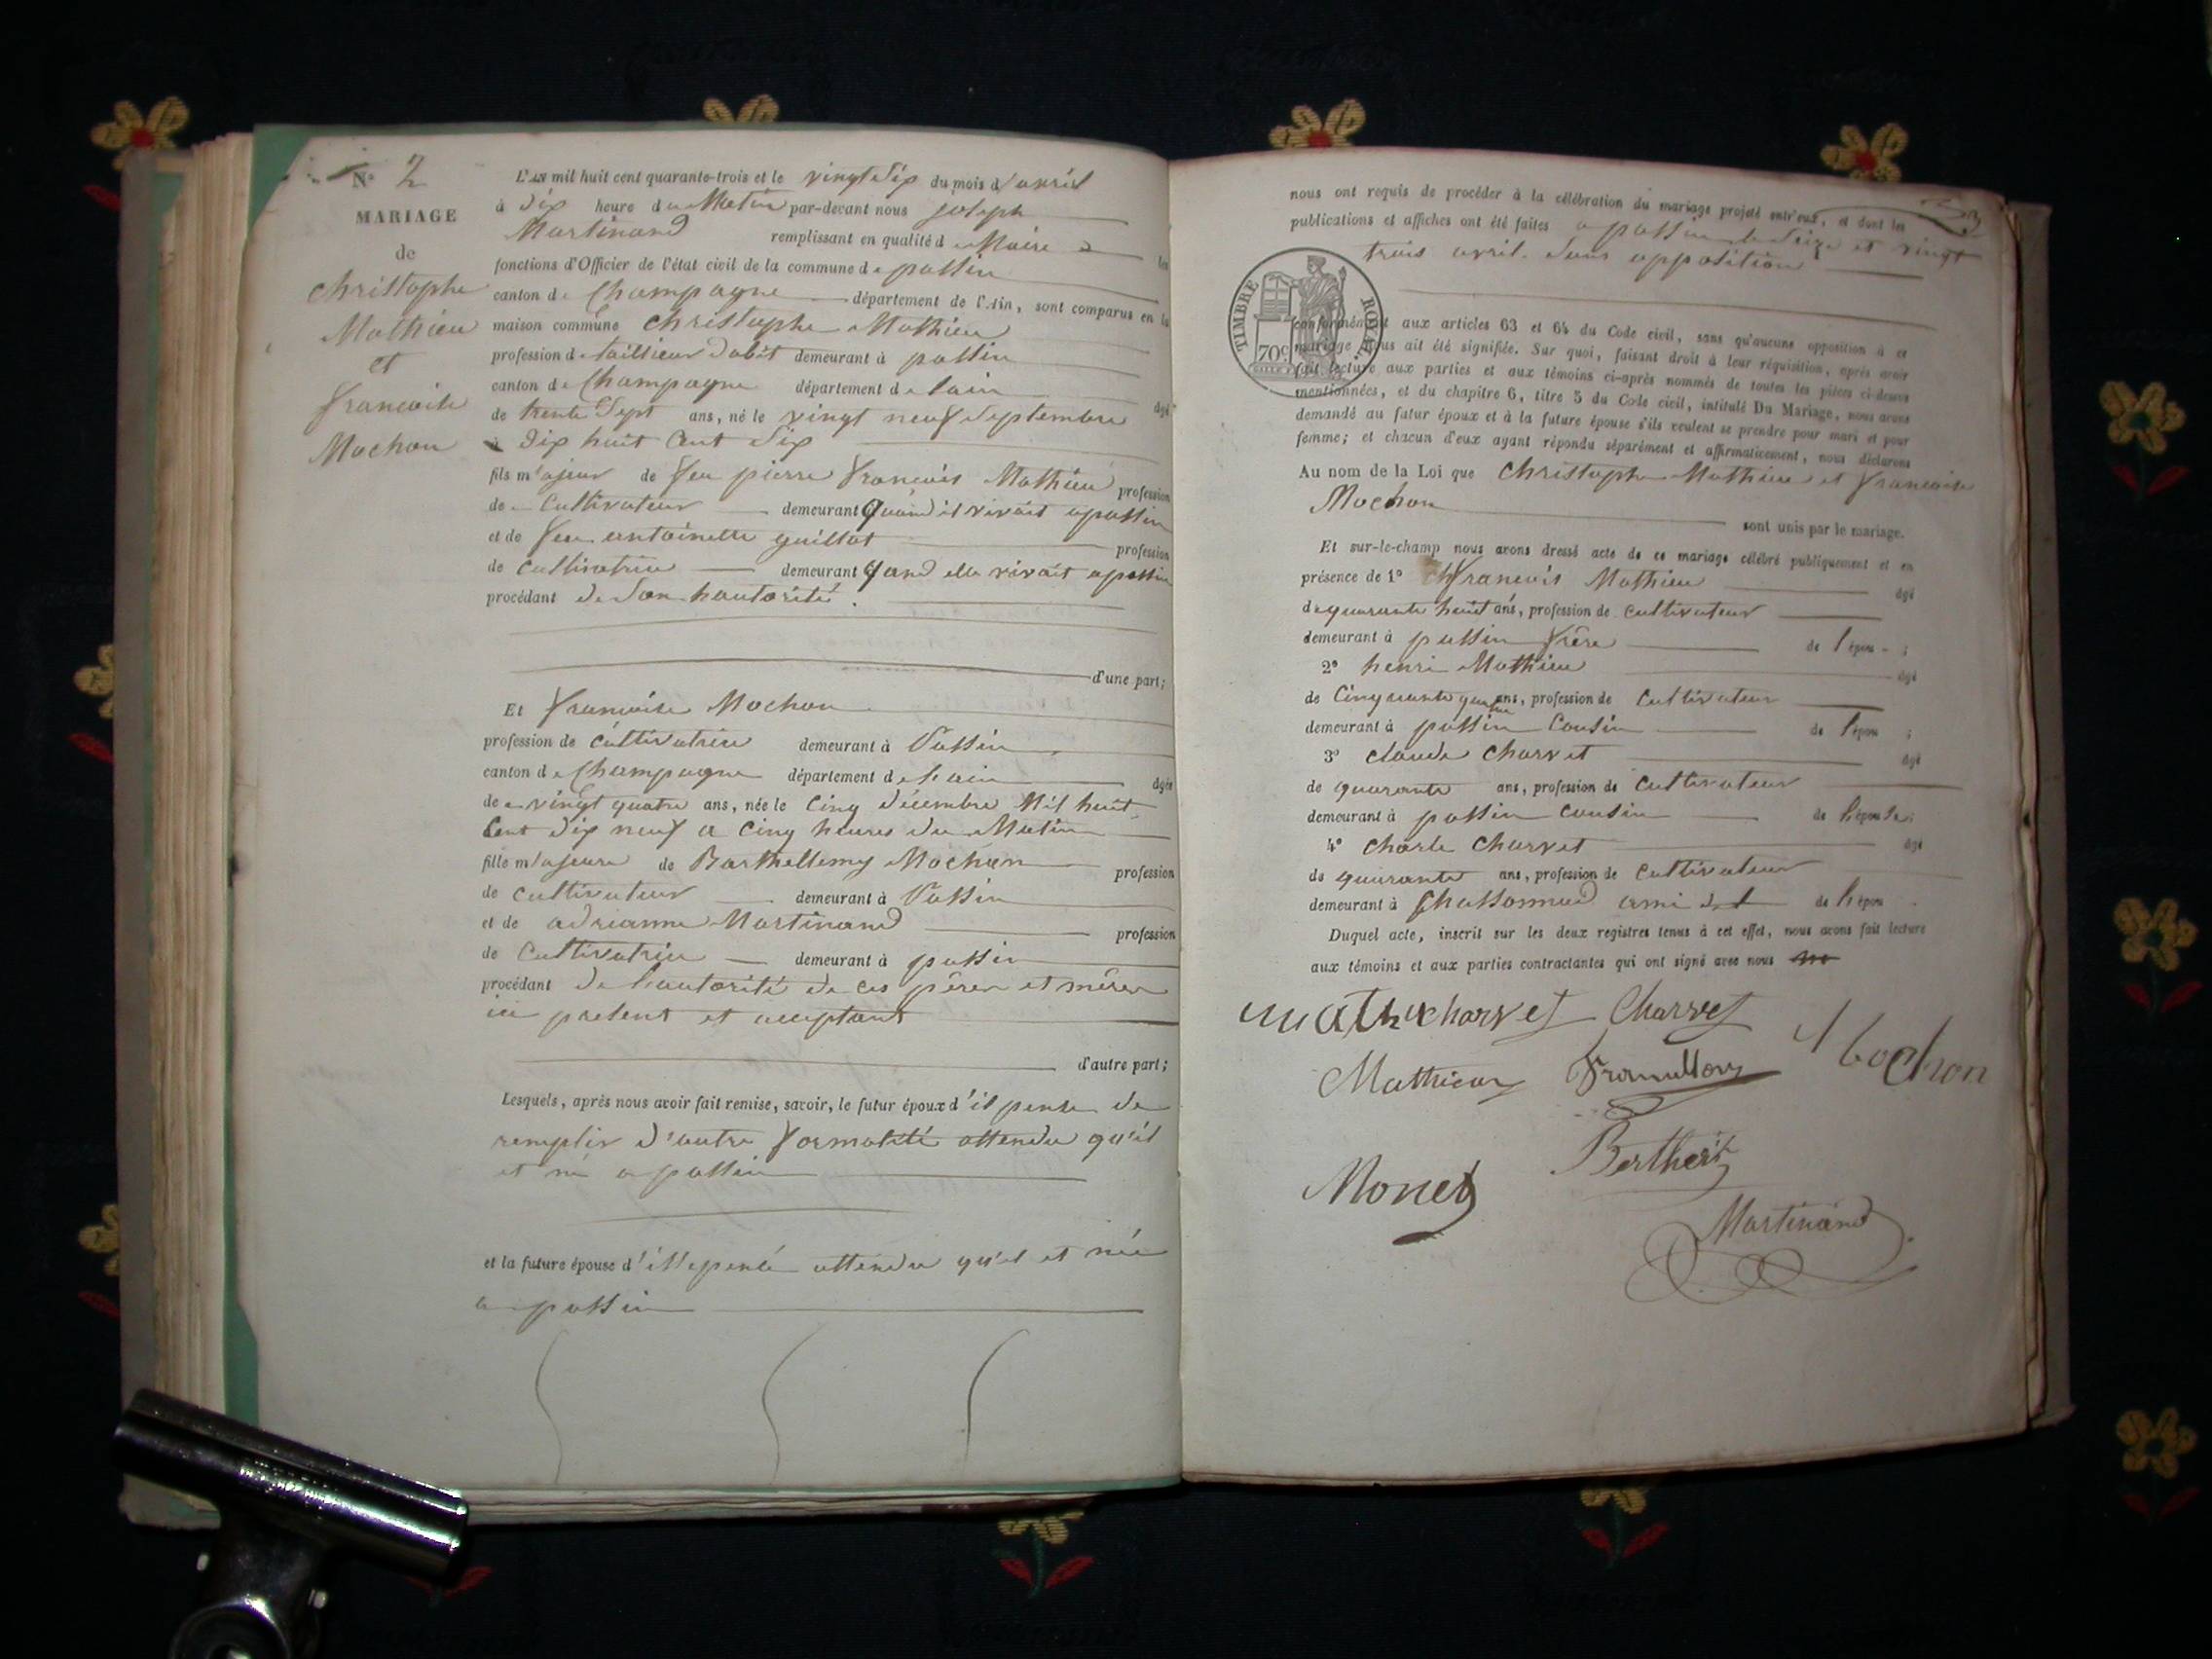 N° 2
MARIAGE
de
christophe
Mathieu
et
francoise
Mochon
L'an mil huit cent quarante-trois et le vingt six du mois d'avril
à dix heure du Matin par-devant nous joseph
Martinand remplissant en qualité de Maire les
fonctions d'Officier de l'état civil de la commune de passin
canton de Champagne département de l'Ain, sont comparus en la
maison commune christophe Mathieu
profession de taillieur dabit demeurant à passin
canton de Champagne département de lain âgé
de trente sept ans, né le vingt neuf septembre
dix huit cent six
fils majeur de feu pierre francois Mathieu profession
de Cultivateur demeurant quand il vivait a passin
et de feu antoinette guillot profession
de cultivatrice demeurant quand elle vivait a passin
procédant de son hautorité.
d'une part;
Et francoise Mochon
profession de cultivatrice demeurant à Passin
canton de Champagne département de lain âgée
de vingt quatre ans, née le cinq décembre Mil huit
Cent dix neuf a cinq heures du Matin
fille majeure de Barthellemy Mochon profession
de cultivateur demeurant à Passin
et de adrianne Martinand profession
de Cultivatrice demeurant à passin
procédant de l'autorité de ces pères et mères
ici present et acceptant
d'autre part;
Lesquels, après nous avoir fait remise, savoir, le futur époux d'il pense de
remplir d'autre formalité attendu qu'il
et né a passin
et la future épouse d'ill'epensé attendu qu'el et née
a passin
nous ont requis de procéder à la célébration du mariage projeté entr'eux, et dont les
publications et affiches ont été faites a passin le seize et vingt
trois avril. sans opposition
TIMBRE ROYAL
70c
conformément aux articles 63 et 64 du Code civil, sans qu'aucune opposition à ce
mariage nous ait été signifiée. Sur quoi, faisant droit à leur réquisition, après avoir
fait lecture aux parties et aux témoins ci-après nommés de toutes les pièces ci-dessus
mentionnées, et du chapitre 6, titre 5 du Code civil, intitulé Du Mariage, nous avons
demandé au futur époux et à la future épouse s'ils veulent se prendre pour mari et pour
femme; et chacun d'eux ayant répondu séparément et affirmativement, nous déclarons
Au nom de la Loi que Christophe Mathieu et francoise
Mochon sont unis par le mariage.
Et sur-le-champ nous avons dressé acte de ce mariage célébré publiquement et en
présence de 1° francois Mathieu âgé
de quarante huit ans, profession de cultivateur
demeurant à passin frère de l'épou ;
2° henri Mathieu âgé
de Cinquante quatre ans, profession de Cultivateur
demeurant à passin Cousin de l'épou ;
3° claude Charvet âgé
de quarante ans, profession de Cultivateur
demeurant à passin cousin de l'épouse;
4° Charle Charvet âgé
de quarante ans, profession de Cultivateur
demeurant à Chassonnod ami de l'épou
Duquel acte, inscrit sur les deux registres tenus à cet effet, nous avons fait lecture
aux témoins et aux parties contractantes qui ont signé avec nous
Charvet Charvet
Mathieu Mochon
Berthet
Monet
Martinand